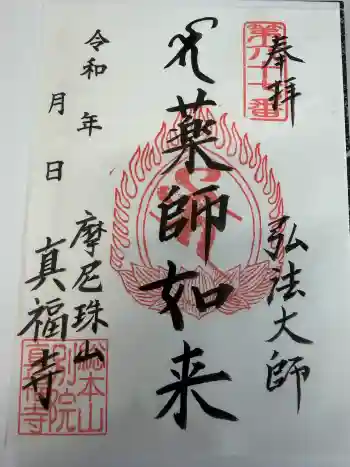 奉拝
弘法大師
薬師如来
令和 年
月 日
摩尼珠山
真福寺
総本山
別院
真福寺